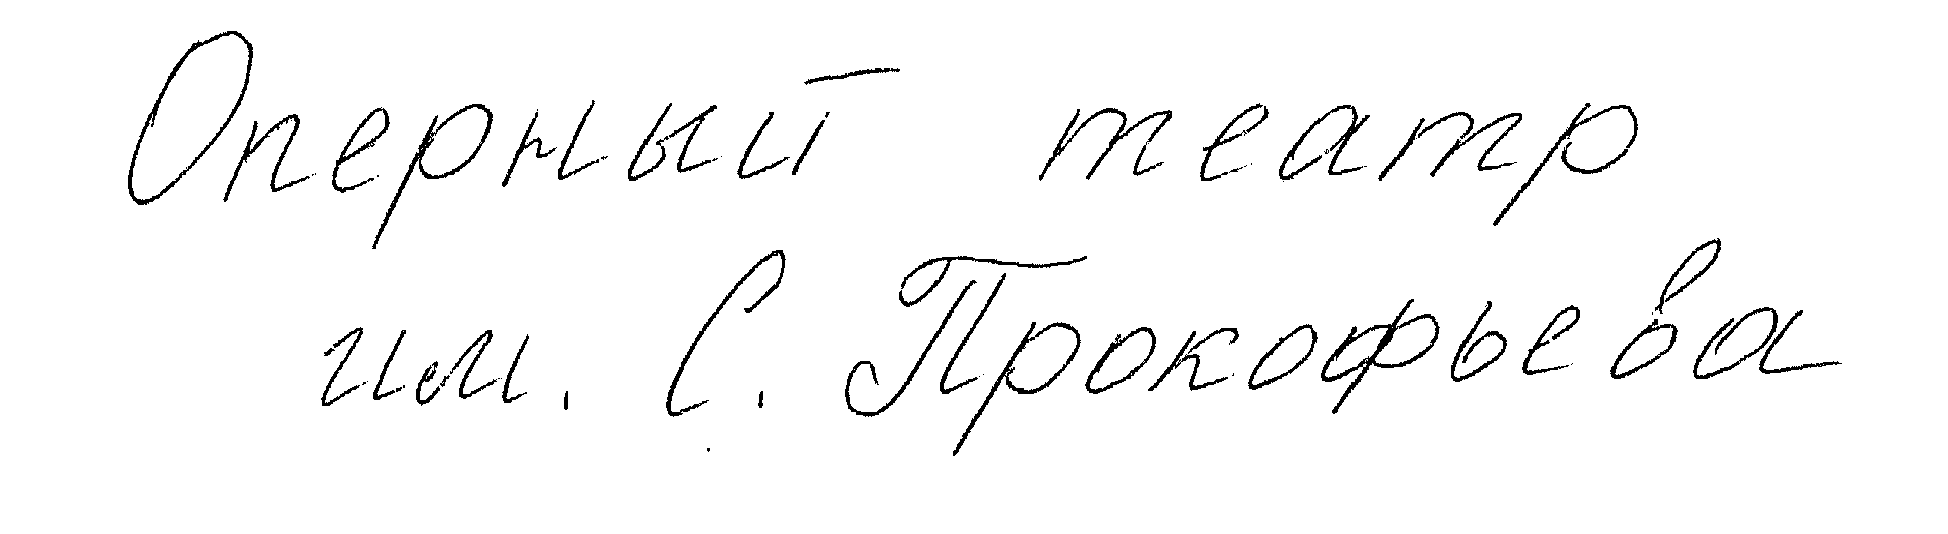 Оперный театр
им. С. Прокофьева